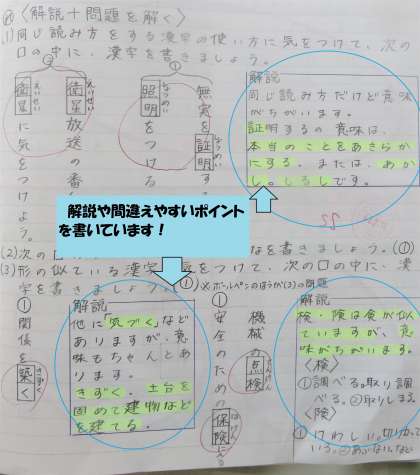 〈解説+問題を解く〉
(1)同じ読み方をする漢字の使い方に気をつけて、次の
口の中に、漢字を書きましょう。
①
無実を証明する。
しょうめい
照明をつける
しょうめい
②
衛星放送の番
えいせい
衛星に気をつけよう。
えいせい
解説
同じ読み方だけど意味
がちがいます。
証明するの意味は、
本当のことをあきらか
にする。または、あか
し。しるしです。
解説や間違えやすいポイント
を書いています！
(2)次の
を書きましょう。(①)
(3)形の似ている漢字
気をつけて、次の口の中に、漢
字を書きましょう。
①※ボールペンのほうが(3)の問題
①
機械の点検
てんけん
安全のための保険に入る
ほけん
解説
検・険は食が似
ていますが、意
味がちがいます。
〈検〉
①調べる。取り調
べる。②取りしまる
〈険〉
①けわしい。
①
関係を築く
きずく
解説
他に「気づく」など
ありますが、意
味もちゃんとあ
ります。
きずく。土台を
固めて建物など
を建てる。